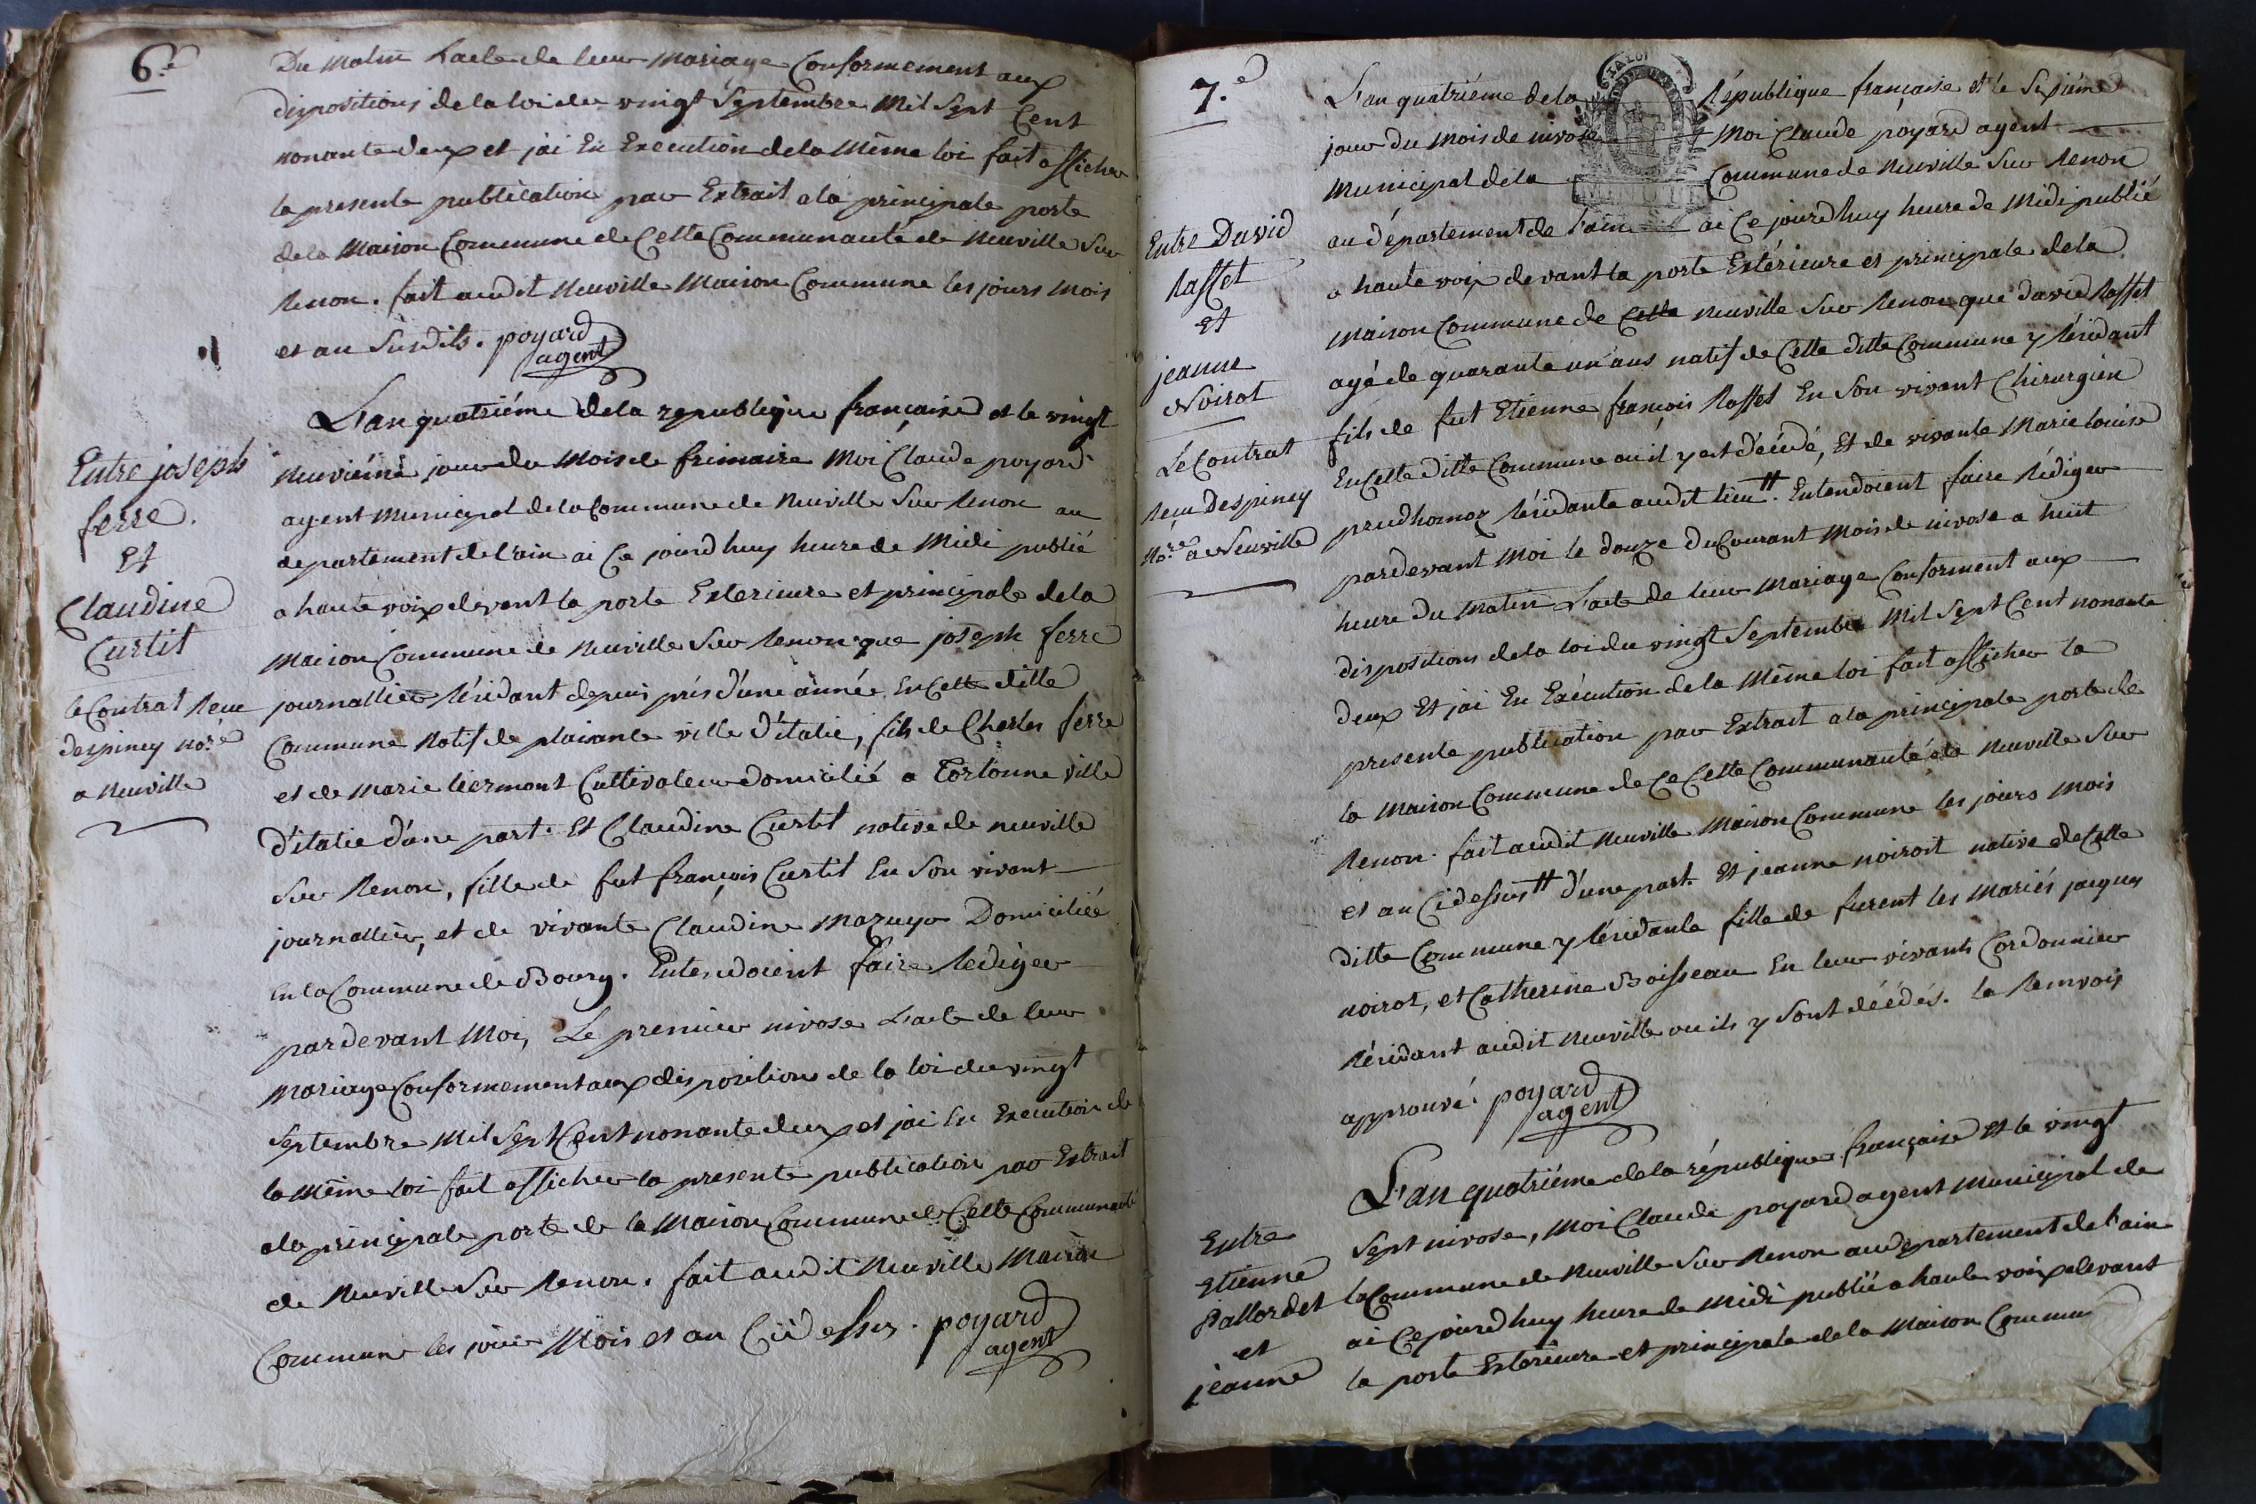 6.e
Du matin L'acte de leur mariage Conformement aux
dispositions de la loi du vingt Septembre Mil Sept Cent
nonante deux et jai En Execution de la Même loi fait afficher
la presente publication par Extrait a la principale porte
de la Maison Commune de Cette Communauté de Neuville Sur
Renon. fait audit Neuville Maison Commune les jours mois
et an Susdits. poyard
agent
Entre joseph
ferre.
Et
Claudine
Curtit
le Contrat Reçu
despiney no.re
a Neuville
L'an quatriéme de la republique française et le vingt
Neuviéme jour du Mois de frimaire Moi Claude poyard
agent Municipal de la Commune de Neuville Sur Renon au
departement de l'ain ai Ce jourd'huy heure de Midi publié
a haute voix devant la porte Exterieure et principale de la
Maison Commune de Neuville Sur Renon que joseph ferre
journallier Résidant depuis prés d'une année En Cette ditte
Commune Natif de plaisante ville d'italie, fils de Charles ferre
et de Marie liermont Cultivateur domicilié a Tortonne ville
d'italie d'une part. Et Claudine Curtit native de neuville
Sur Renon, fille de fut françois Curtit En Son vivant
journallier, et de vivante Claudine Mazuyer Domiciliée
En la Commune de Bourg. Entendoient faire Rediger
pardevant Moi, Le premier nivose L'acte de leur
Mariage Conformement aux dispositions de la loi du vingt
Septembre Mil Sept Cent nonante deux et jai En Execution de
la Même loi fait afficher la presente publication par Extrait
a la principale porte de la Maison Commune de Cette Communauté
de Neuville Sur Renon. fait audit Neuville Maison
Commune les jour Mois et an Cidessus. poyard
agent
7.e
L'an quatriéme de la République française et le Sixiéme
jour du Mois de nivose Moi Claude poyard agent
Municipal de la Commune de Neuville Sur Renon
au département de l'ain ai Ce jourd'huy heure de Midi publié
a haute voix devant la porte Extérieure et principale de la
Maison Commune de Cette Neuville Sur Renon que david Raffet
agé de quarante un ans natif de Cette ditte Commune y Résidant
fils de fut Etienne françois Raffet En Son vivant Chirurgien
En Cette ditte Commune ou il y est décédé, Et de vivante Marie louise
prudhomoz Résidante audit lieu #. Entendoient faire Rédiger
pardevant Moi le douze du Courant Mois de nivose a huit
heure du Matin L'acte de leur Mariage Conforment aux
dispositions de la loi du vingt Septembre Mil Sept Cent nonante
deux Et jai En Exécution de la Même loi fait afficher la
presente publication par Extrait a la principale porte de
la Maison Commune de Ce Cette Communauté de Neuville Sur
Renon. fait audit Neuville Maison Commune les jours Mois
et an Cidessus # d'une part. Et jeanne noiroit native de Cette
ditte Commune y Résidante fille de furent les Mariés jacques
noirot, et Catherine Boisseau En leur vivants Cordonnier
Résidant audit Neuville ou ils y sont décédés. le Renvois
approuvé. poyard
agent
Entre David
Raffet
Et
jeanne
Noirot
Le Contrat
Reçu Despiney
No.re a Neuville
L'an quatriéme de la république française et le vingt
Sept nivose, Moi Claude poyard agent Municipal de
la Commune de Neuville Sur Renon au departement de l'ain
ai Ce jourd'huy heure de Midi publié a haute voix devant
la porte Exterieure et principale de la Maison Commune
Entre
Etienne
Pallordet
et
jeanne